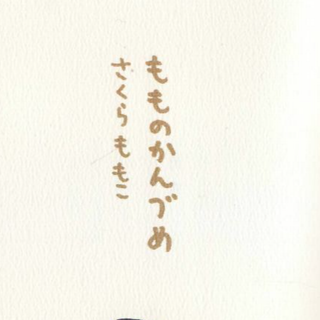 もものかんづめ
さくらももこ